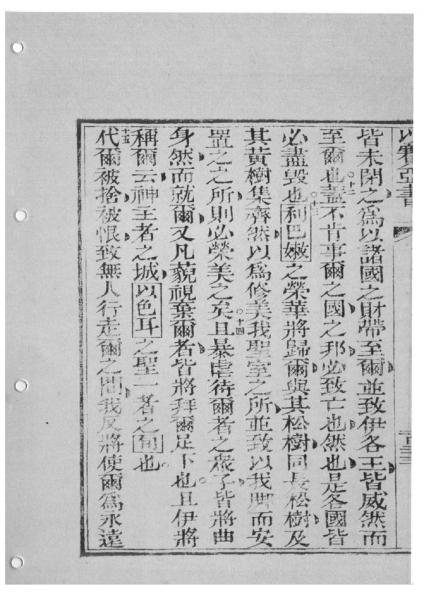 以賽亞書
皆未閉之爲以諸國之財帶至爾並致伊各王皆威然而
至爾也○十二蓋不肯事爾之國之邦必致亡也然也是各國皆
必盡毀也○十三利巴嫩之榮華將歸爾與其松樹同長松樹及
其黃樹集齊然以爲修美我聖室之所並致以我脚而安
置之之所則必榮美之矣○十四且暴虐待爾者之衆子皆將曲
身然而就爾又凡藐視棄爾者皆將拜爾足下也且伊將
稱爾云神主者之城以色耳之聖一者之旬也
十五代爾被捨被恨致無人行走爾之間我反將使爾爲永遠